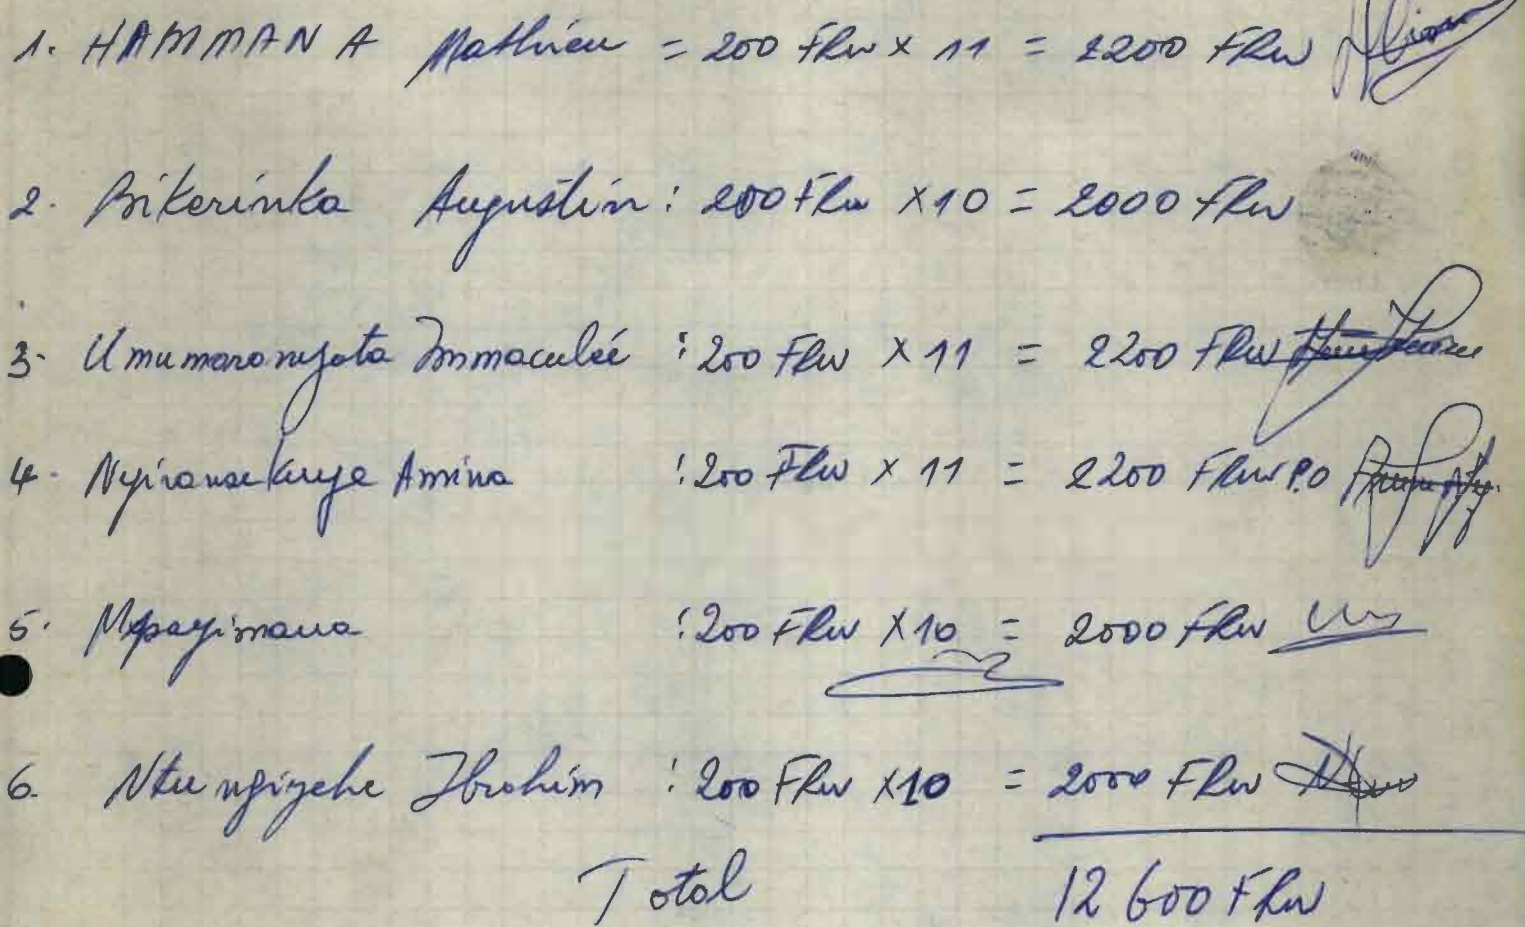 1. HAMMANA Mathieu = 200 FRw x 11 = 2200 FRw
2. Bikerinka Augustin : 200 FRw x 10 = 2000 FRw
3. Umumararungota Immaculée : 200 FRw x 11 = 2200 FRw
4. Nyiransekuye Amina : 200 FRw x 11 = 2200 FRw P.O
5. Mpayimana : 200 FRw x 10 = 2000 FRw
6. Ntungiyehe Ibrahim : 200 FRw x 10 = 2000 FRw
Total 12 600 FRw